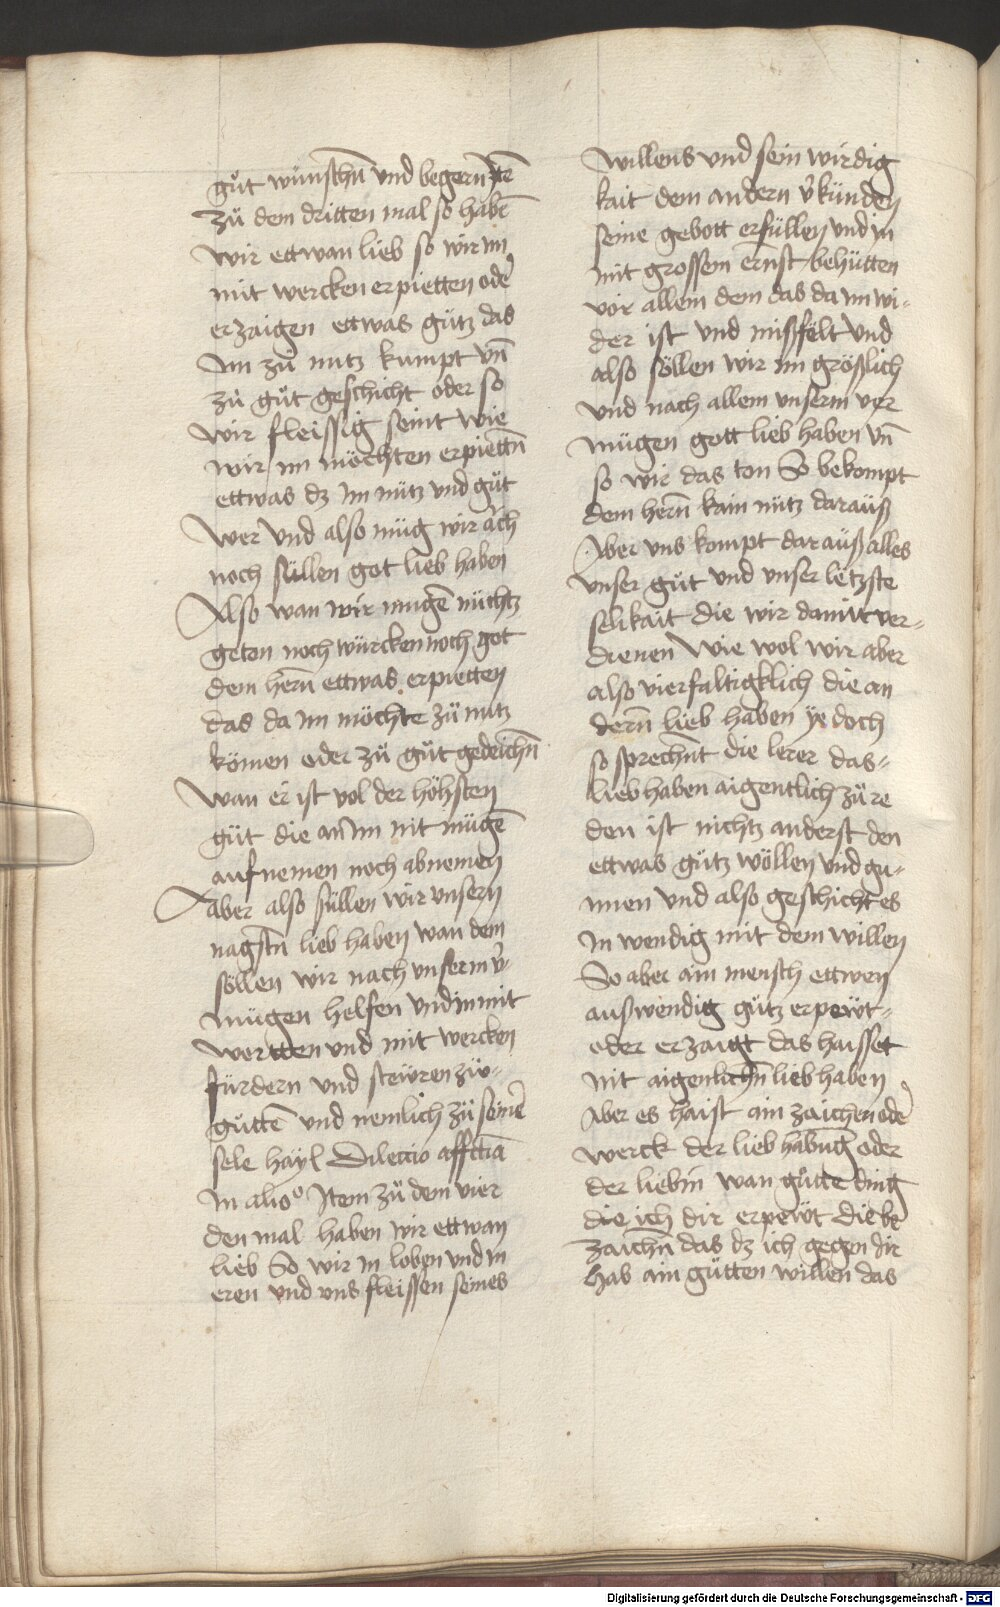 gůt wünschn̄ vnd begern
zů dem dritten mal so habē
wir ettwan lieb so wir im
mit wercken erpietten odeʾ
erzaigen ettwas gůtz das
Im zů nutz kumpt vn̄
zů gůt geschicht oder so
wir fleissig seint wie
wir im möchten erpiettn̄
ettwas dz im nütz vnd gůt
Wer vnd also müg wir ach
noch süllen got lieb haben
Also wan wir mugē nüchtz
geton noch würcken noch got
dem hern̄ ettwas erpietten
das da im möchte zů nutz
kömen oder zů gůt gedeichn̄
Wan er ist vol der höhsten
gůt die an im nit mügē
auf nemen noch abnemen
Aber also süllen wir vnsern
nagstn̄ lieb haben wan dem
söllen wir nach vnserm vʾ-
mügen helfen vnd in mit
wortten vnd mit wercken
fürdern vnd steüren zů-
gůttē vnd nemlich zů seineʾ
sele hayl Dilectio affctiā
in alio° Item zů dem vier
den mal haben wir ettwan
lieb So wir in loben vnd in
eren vnd vns fleissen seines
willens vnd sein wirdig
kait dem andern vʾkünden
seine gebott erfüllen vnd in
mit grossem ernst behütten
vor allem dem das da im wi-
der ist vnd mißfelt vnd
also söllen wir im größlich
vnd nach allem vnserm ver
mügen gott lieb haben vn̄
so wir das ton So bekompt
dem hern̄ kain nütz darauß
Aber vns kompt darauß alles
vnser gůt vnd vnser letzste
selikait die wir damit ver-
dienen Wie wol wir aber
also vierfaltigklich die an
dern̄ lieb haben ye doch
so sprechn̄t die lerer das-
lieb haben aigentlich zů re
den ist nichtz anderst den
ettwas gůtz wöllen vnd gu-
nnen vnd also geschicht es
In wendig mit dem willen
So aber ain mensch ettwen
auswendig gůtz erpewt-
oder erzaigt das haisset
nit aigenlichn̄ lieb haben
Aber es haist ain zaichen odeʾ
werck der lieb habung oder
der liebin wan gůtte ding
die ich dir erpewt die be
zaichn̄ das dz ich gegen dir
hab ain gůtten willen das
Digitalisierung gefördert durch die Deutsche Forschungsgemeinschaft - DFG